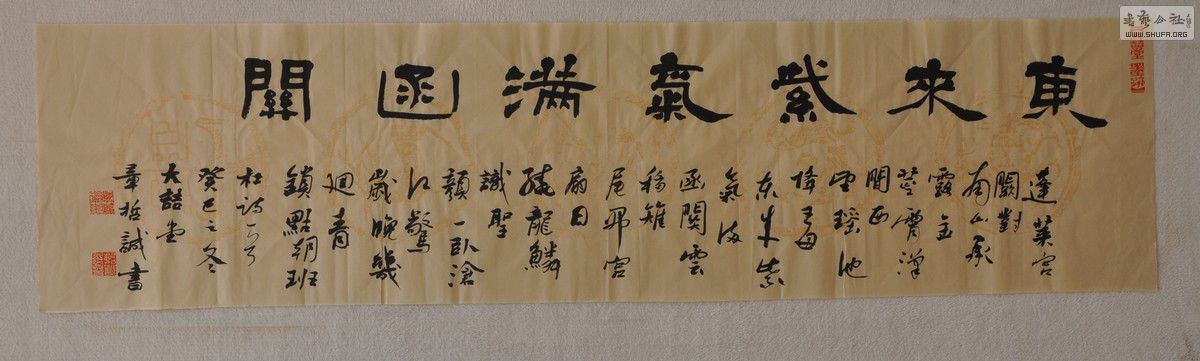 東來紫氣滿函關
蓬萊宮
闕對
南山承
露金
莖霄漢
間西
望瑤池
降王母
東來紫
氣滿
函關雲
移雉
尾開宮
扇日
繞龍鱗
識聖
顏一臥滄
江驚
歲晚幾
廻青
鎖點朝班
杜詩一首
癸巳之冬
大喆堂
章哲誠書
書藝公社
WWW.SHUFA.ORG